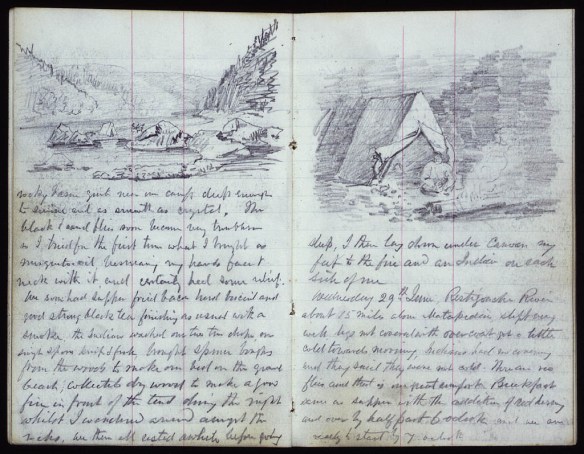 rocky basin just near our camp deep enough
to swim and as smooth as crystal. The
black & sand flies soon became very troublesome
so I tried for the first time what I brought as
musquito oil smearing my hands face &
neck with it and certainly had some relief.
We soon had supper fried bacon hard biscuit and
good strong black tea finishing as usual with a
smoke, the Indians washed our two tin cups, our
single spoon knife & fork, brought spruce boughs
from the woods to make our bed on the gravel
beach, collected dry wood to make a good
fire in front of the tent during the night
whilst I wandered around amongst the
rocks. We then all rested awhile before going
sleep, I then lay down under canvas my
feet to the fire and an Indian on each
side of me
Wednesday 29th June. Restigouche River
about 15 miles above Metapedia slept very
well legs not covered with overcoat got a little
cold towards morning, Indians had no covering
and they said they were not cold. There are no
flies and that is great comfort. Breakfast
same as supper with the addition of
and over by half past 6 oclock and we are
ready to start by 7 oclock